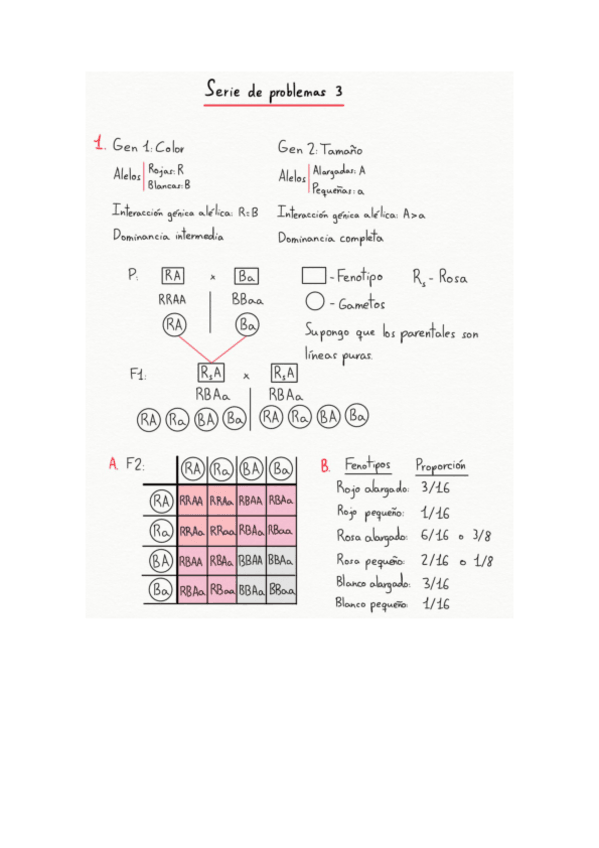 Serie de problemas 3
1. Gen 1: Color
Alelos Rojas: R
Blancas: B
Interacción génica alélica: R=B
Dominancia intermedia
Gen 2: Tamaño
Alelos Alargadas: A
Pequeñas: a
Interacción génica alélica: A>a
Dominancia completa
P: RA x Ba
RRAA BBaa
RA Ba
- Fenotipo Rs - Rosa
- Gametos
Supongo que los parentales son
líneas puras.
F1: RsA x RsA
RBAa RBAa
RA Ra BA Ba RA Ra BA Ba
A. F2:
RA Ra BA Ba
RA RRAA RRAa RBAA RBAa
Ra RRAa RRaa RBAa RBaa
BA RBAA RBAa BBAA BBAa
Ba RBAa RBaa BBAa BBaa
B. Fenotipos Proporción
Rojo alargado: 3/16
Rojo pequeño: 1/16
Rosa alargado: 6/16 o 3/8
Rosa pequeño: 2/16 o 1/8
Blanco alargado: 3/16
Blanco pequeño: 1/16